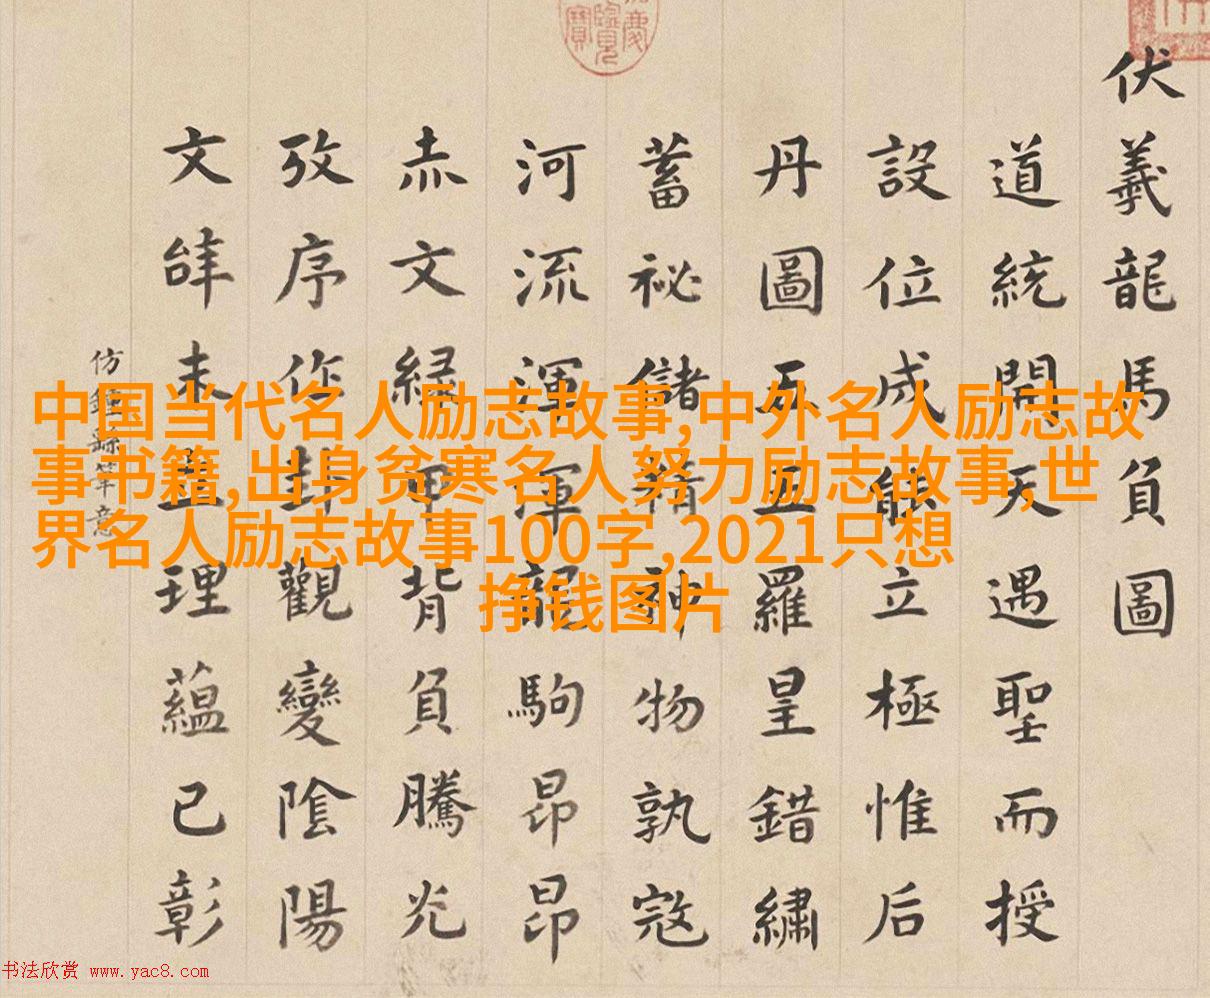 伏羲龍馬負圖
道統開天遇聖而授
設位成能立極惟后
丹圖五五羅皇錯繡
蓄祕儲精神物孰寇
河流渾渾龍駒昂昂
赤文綠甲背負騰光
攷序作卦觀變陰陽
文辝未理蘊已彰
仿鍾繇筆意
中国当代名人励志故事,中外名人励志故
事书籍,出身贫寒名人努力励志故事,世
界名人励志故事100字,2021只想
挣钱图片
书法欣赏 www.yac8.com